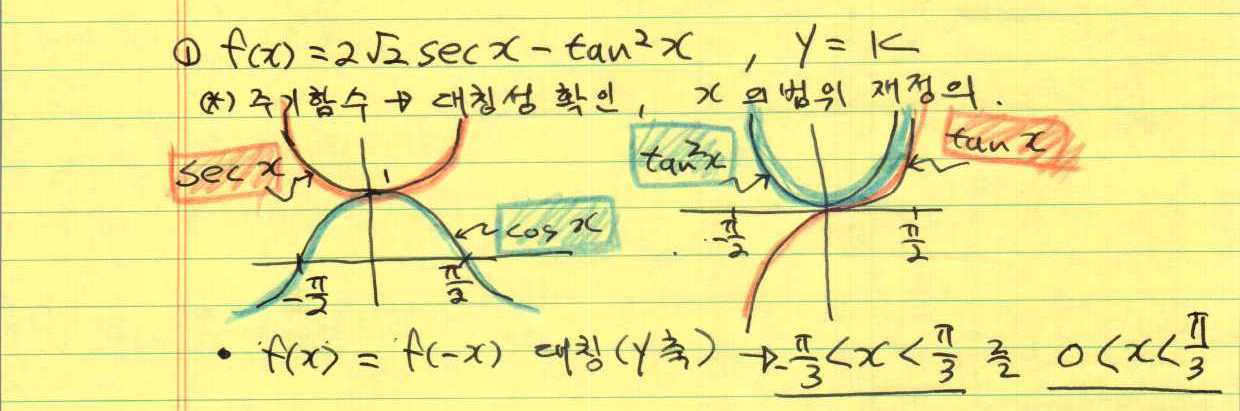 ① f(x) = 2√2 sec x - tan²x , y = K
(*) 주기함수 → 대칭성 확인, x의 범위 재정의.
sec x 1 cos x -π/2 π/2
tan²x tan x -π/2 π/2
• f(x) = f(-x) 대칭(y축) → -π/3 < x < π/3 를 0 < x < π/3